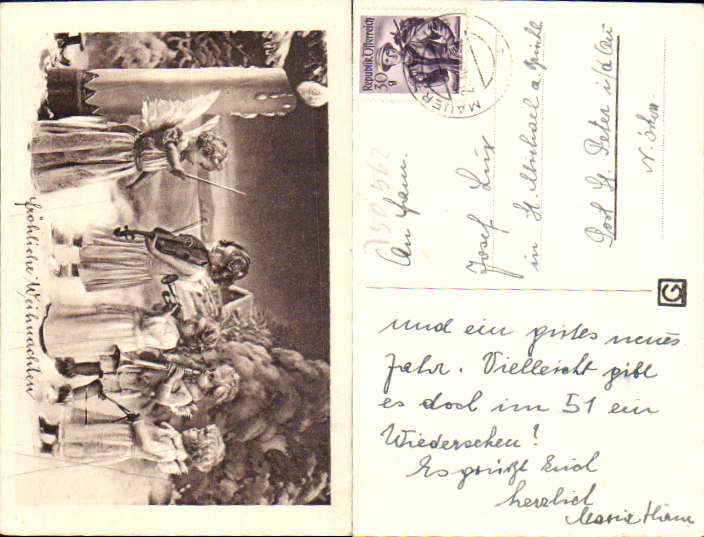 Fröhliche Weihnachten
Republik Österreich
30 g
MAUER
750562
An Fam.
Josef Lux
in St. Michael a.
Post St. Peter i/d Au
N. Öster.
G
und ein gutes neues
Jahr. Vielleicht gibt
es doch im 51 ein
Wiedersehen!
Es grüßt Euch
herzlich
Maria